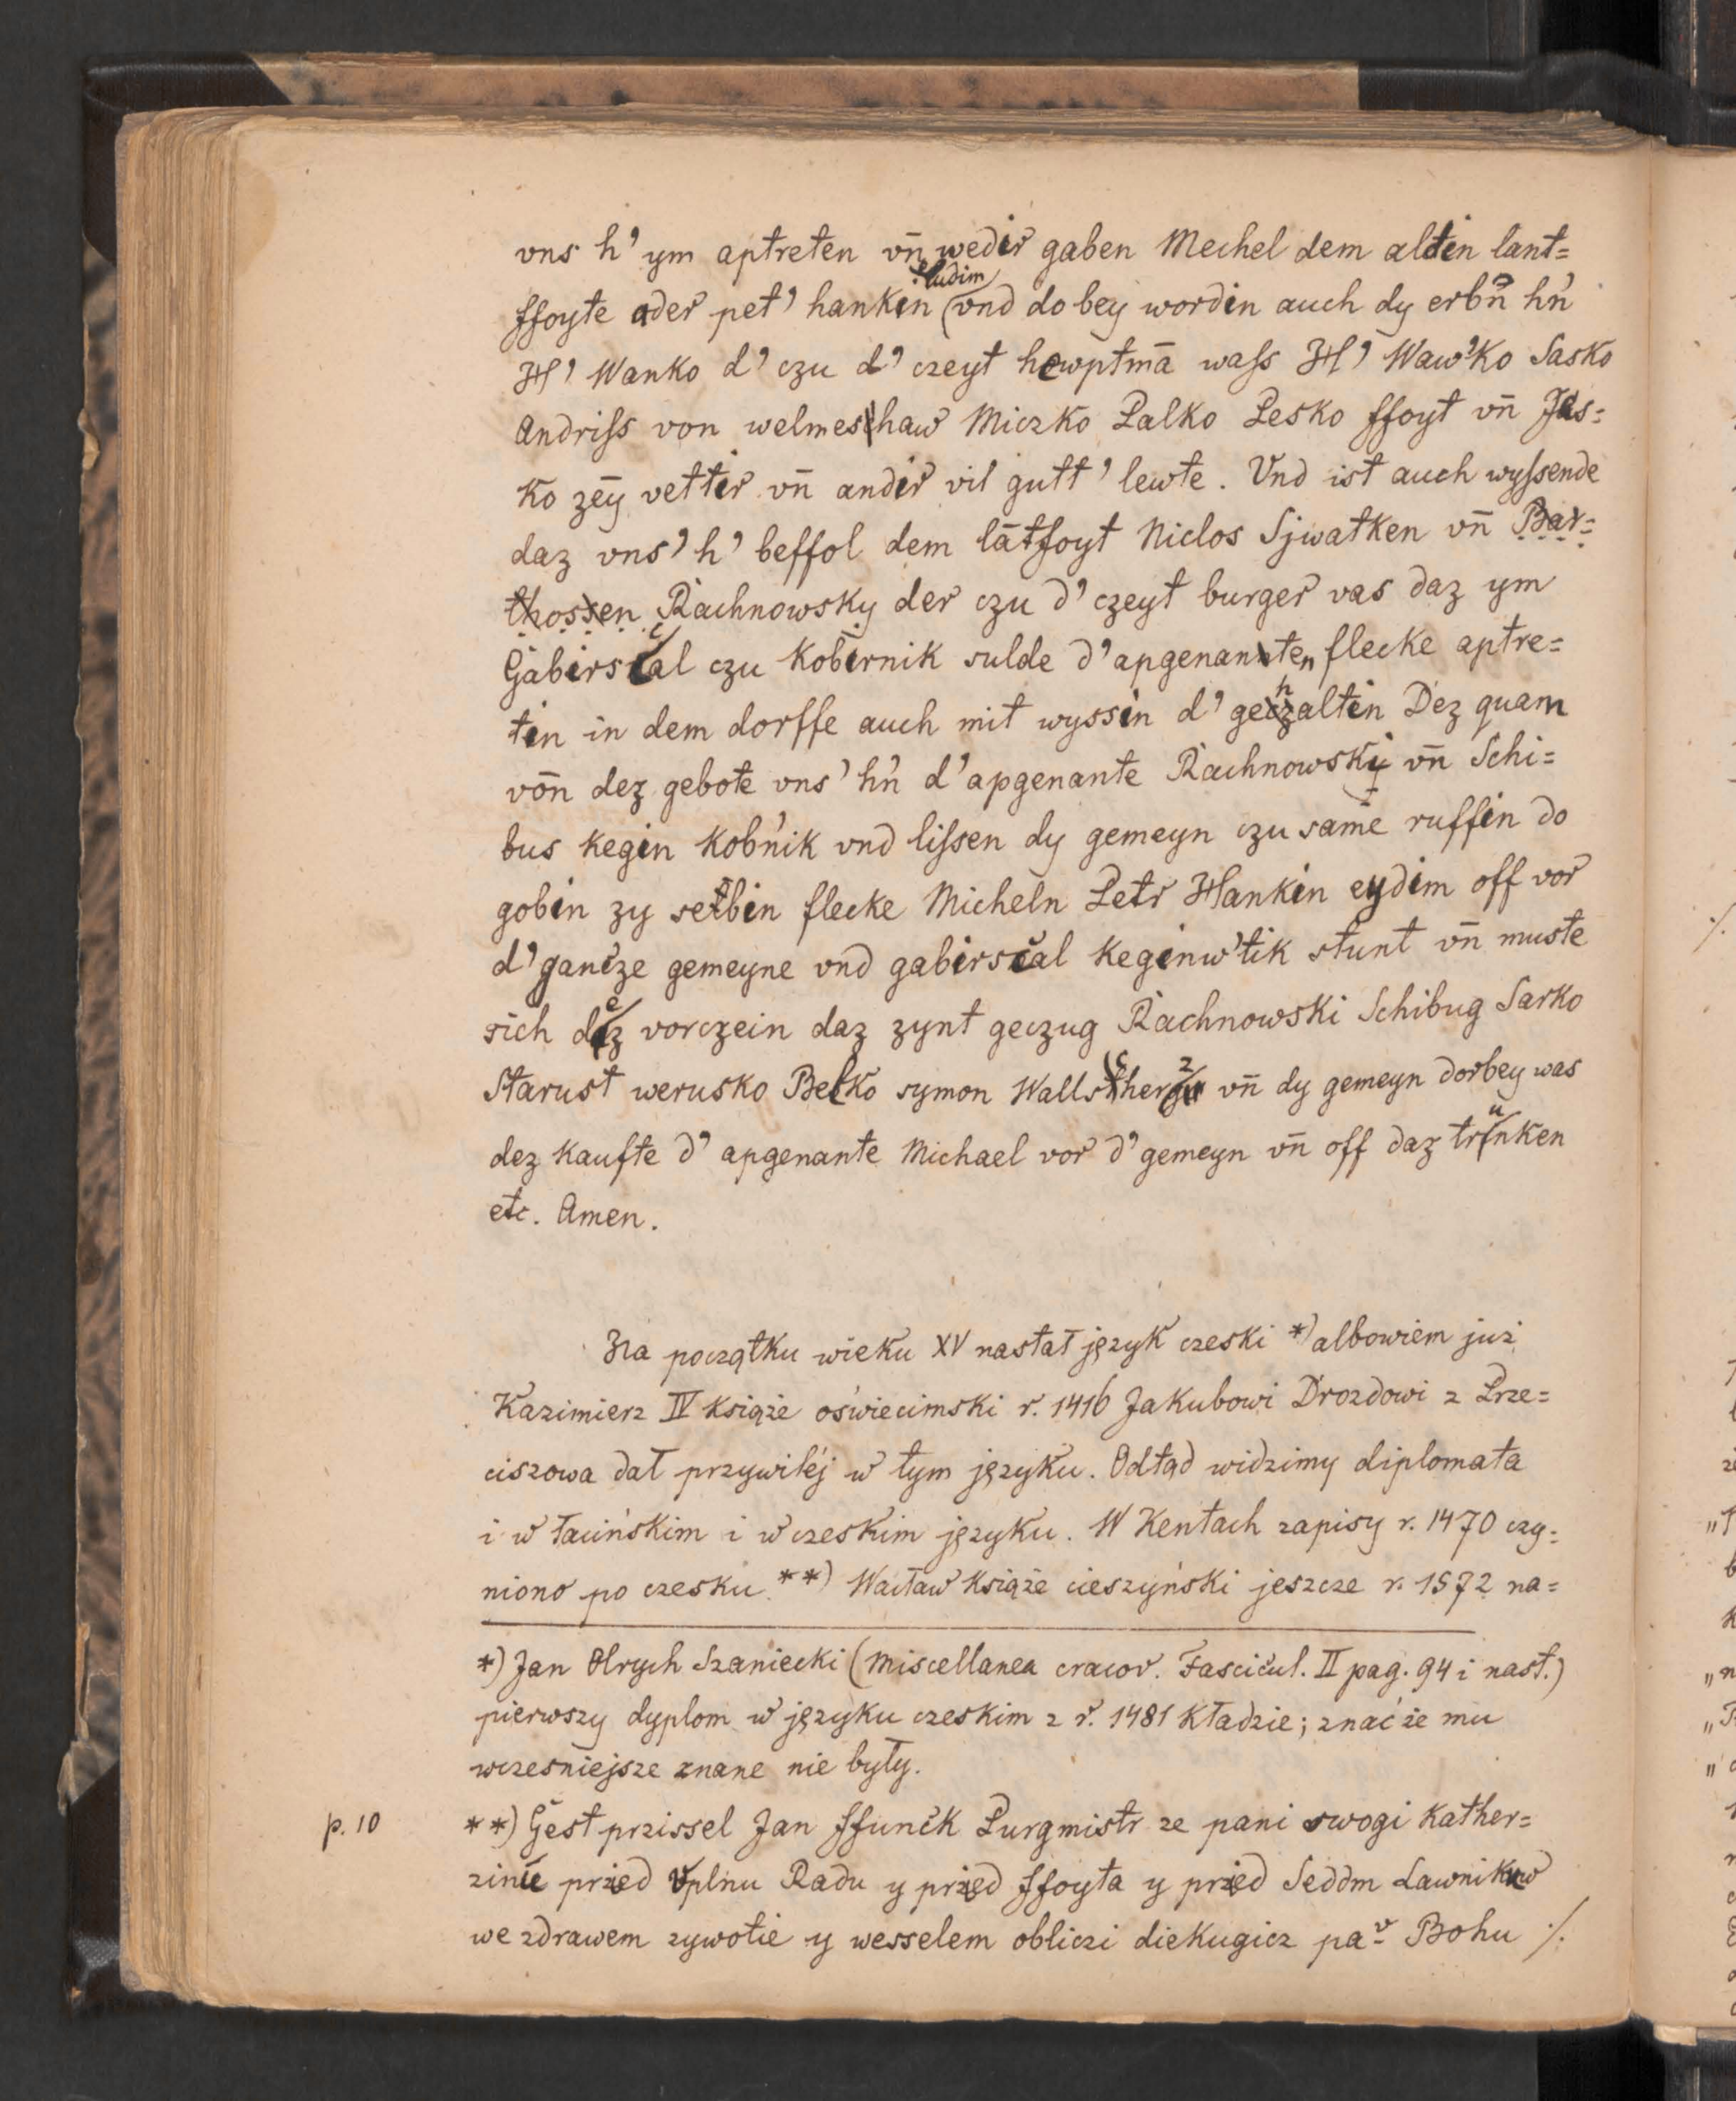 vns h' ym aptreten vn̄ wedir gaben Mechel dem alden lant=
ffoyte ader pet' hankin eudim vnd do bey wordin auch dy erbn̄ hn'
H' Wanko d' czu d' czeyt hewptmā wass H' Waw'ko Sasko
Andriss von welmeschaw Miczko Palko Pesko ffoyt vn̄ Jas=
ko zēy vettir vn̄ andir vil gutt' lewte. Vnd ist auch wyssende
daz vns' h' beffol dem lātfoyt Niclos Sjwatken vn̄ Bar=
thossen Rachnowsky der czu d' czeyt burger vas daz ym
Gabirscal czu Kobirnik sulde d' apgenanten flecke aptre=
tin in dem dorffe auch mit wyssin d' gehaltin Dez quam
vōn dez gebote vns' hn' d' apgenante Rachnowski vn̄ Schi=
bus kegin Kob'nik vnd lissen dy gemeyn czu samē ruffin do
gobin zy selbin flecke Micheln Petr Hankin eydim off vor
d' gancze gemeyne vnd gabirscal keginw'tik stunt vn̄ muste
sich dez vorczein daz zynt geczug Rachnowski Schibug Sarko
Starust werusko Belko symon Wallscherz vn̄ dy gemeyn dorbey was
dez kaufte d' apgenante Michael vor d' gemeyn vn̄ off daz trunken
etc. Amen.
Na początku wieku XV nastał język czeski *) albowiem już
Kazimierz IV książe oświecimski r. 1416 Jakubowi Drozdowi z Prze=
ciszowa dał przywilej w tym języku. Odtąd widzimy diplomata
i w łacińskim i w czeskim języku. W Kentach zapisy r. 1470 czy=
niono po czesku **) Wacław książe cieszyński jeszcze r. 1572 na=
*) Jan Olrych Szaniecki (Miscellanea cracov. Fascicul. II pag. 94 i nast.)
pierwszy dyplom w języku czeskim z r. 1481 kładzie; znać że mu
wcześniejsze znane nie były.
p. 10 **) Gest przissel Jan ffunck Purgmistr ze pani swogi Kather=
zinie przed Vplnu Radu y przed ffoyta y przed Seddm Lawnikuw
we zdrawem zywotie y wesselem obliczi diekugicz pa⁻ᵛ Bohu ./.